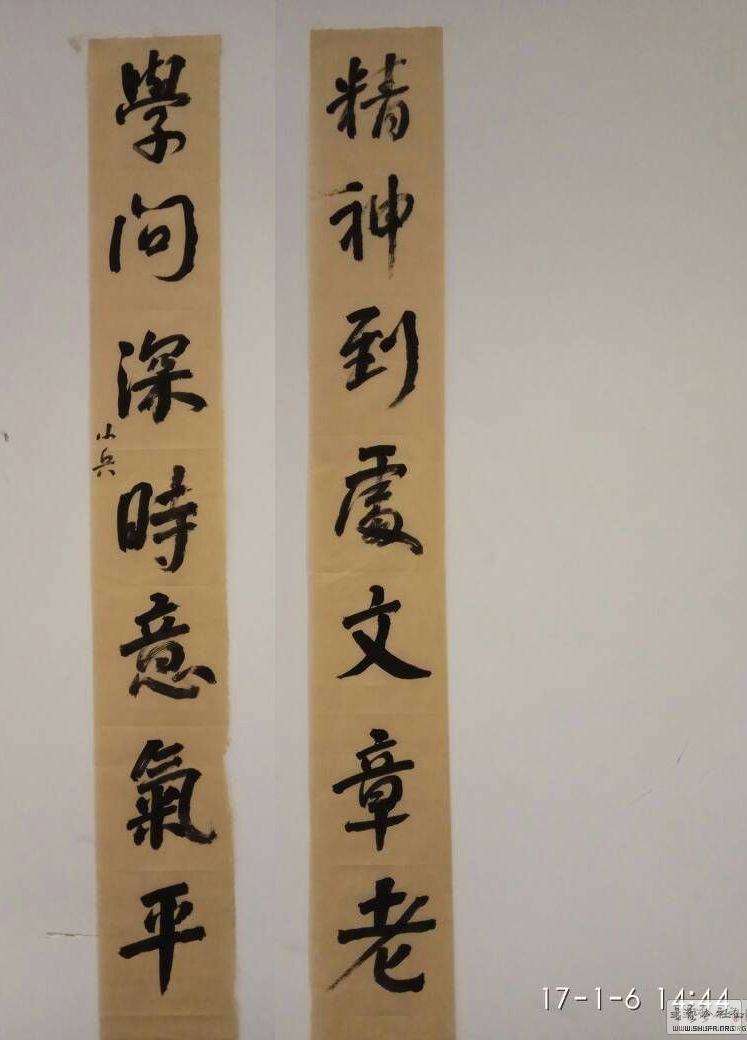 精神到處文章老
學問深時意氣平
小兵
17-1-6 14:44
WWW.SHUFA.ORG